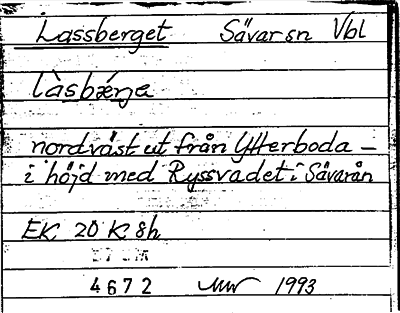 Lassberget Sävar sn Vbl
làsbǽŋa
nordväst ut från Ytterboda –
i höjd med Ryssvadet i Sävarån
EK 20 K 8h
4672 1993